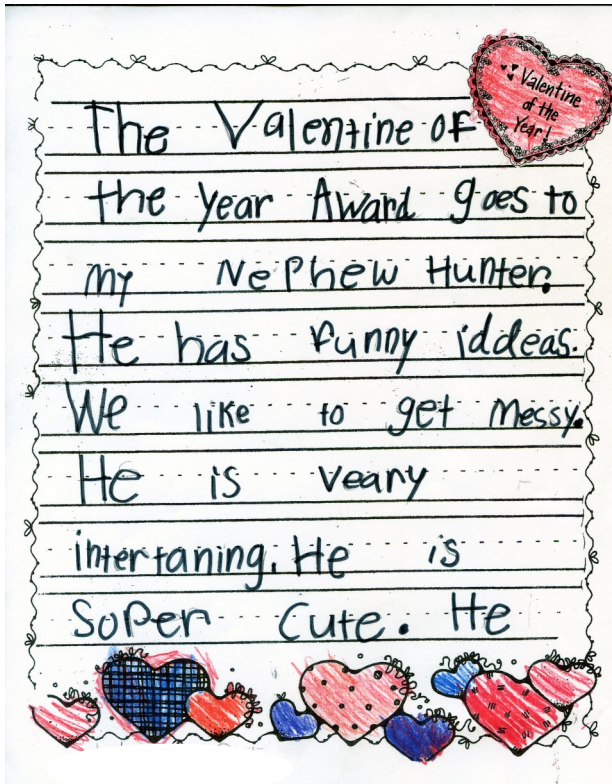 Valentine
of the
Year!
The Valentine of
the year Award goes to
my Nephew Hunter.
He has funny iddeas.
We like to get messy.
He is veary
intertaning. He is
Soper Cute. He